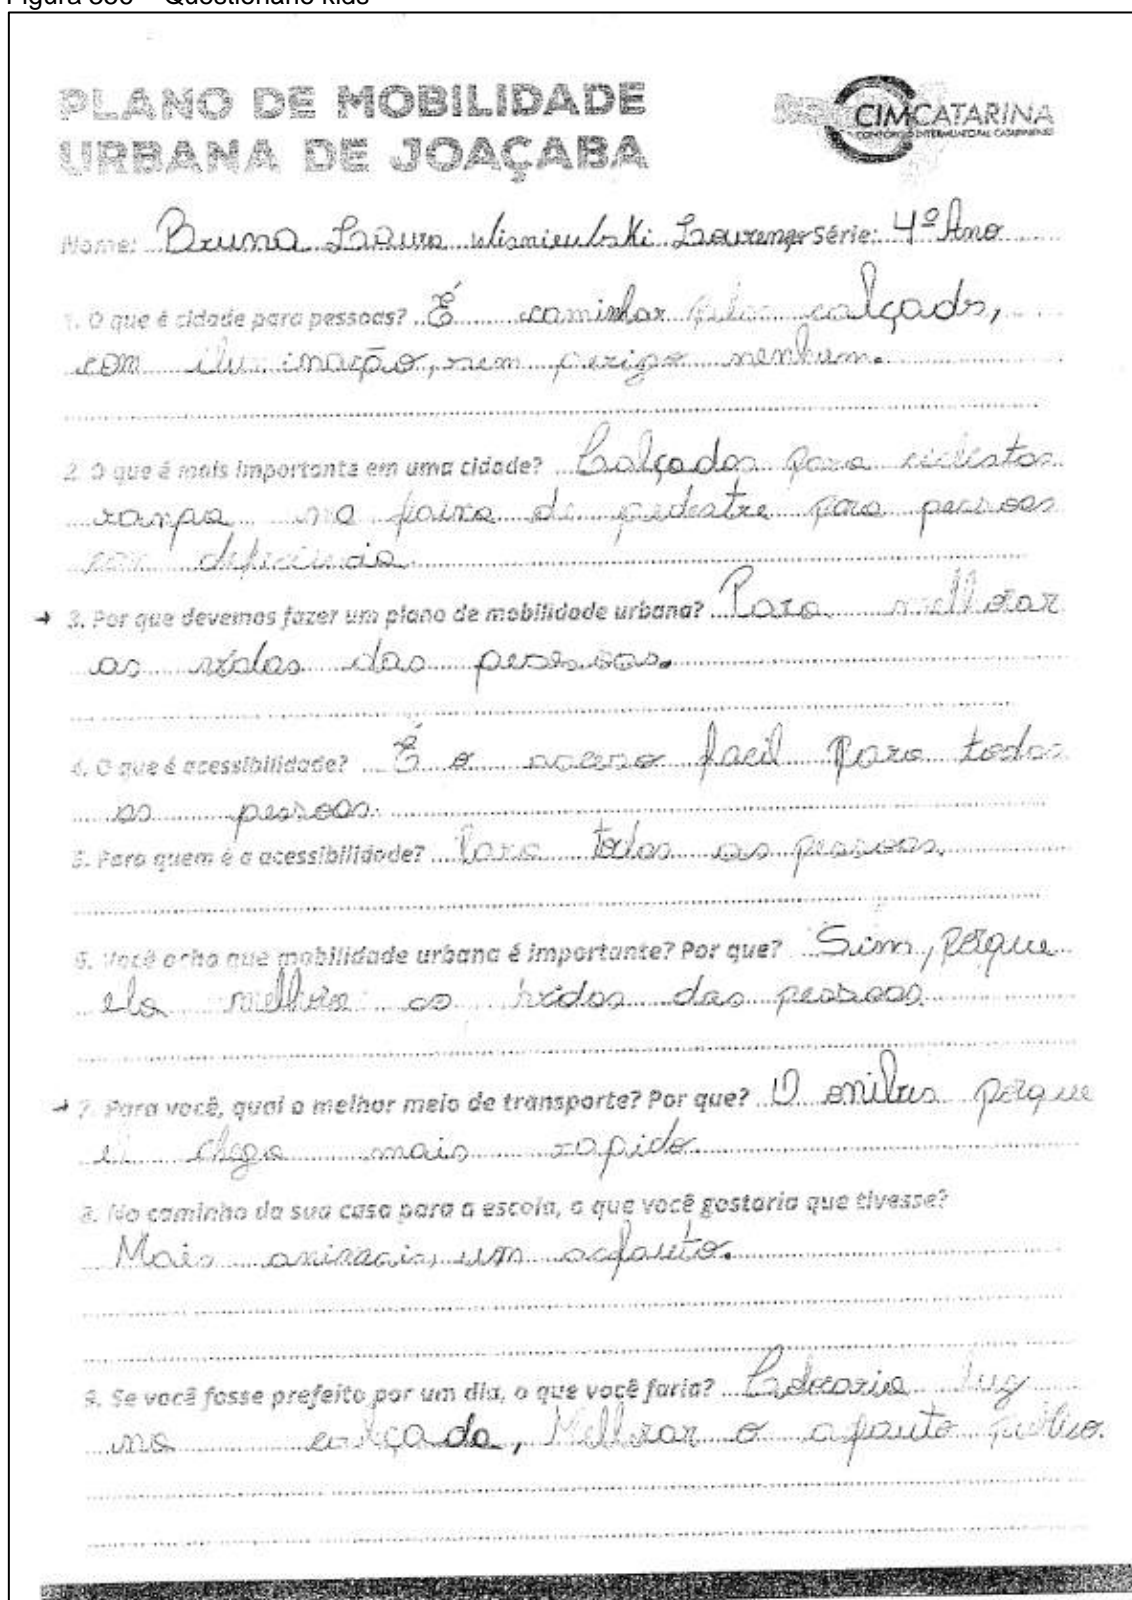 Figura 306 – Questionário kids
PLANO DE MOBILIDADE
URBANA DE JOAÇABA
CIMCATARINA
CONSÓRCIO INTERMUNICIPAL CATARINENSE
Nome: Bruna Laura Série: 4º Ano
1. O que é cidade para pessoas? É caminhar pelas calçads,
com iluminação, sem perigo nenhum.
2. O que é mais importante em uma cidade? Calçadas para
rampa na faixa de pedestre para pessoas
com deficiencia
→ 3. Por que devemos fazer um plano de mobilidade urbana? Para melhorar
as vidas das pessoas.
4. O que é acessibilidade? É o acesso facil para todas
as pessoas.
5. Para quem é a acessibilidade? Para todas as pessoas.
6. Você acha que mobilidade urbana é importante? Por que? Sim, porque
ela melhora as vidas das pessoas
→ 7. Para você, qual o melhor meio de transporte? Por que? O onibus porque
chega mais rapido.
8. No caminho da sua casa para a escola, o que você gostaria que tivesse?
Mais animais, um
9. Se você fosse prefeito por um dia, o que você faria? Colocaria
na calçada, Melhorar o publico.